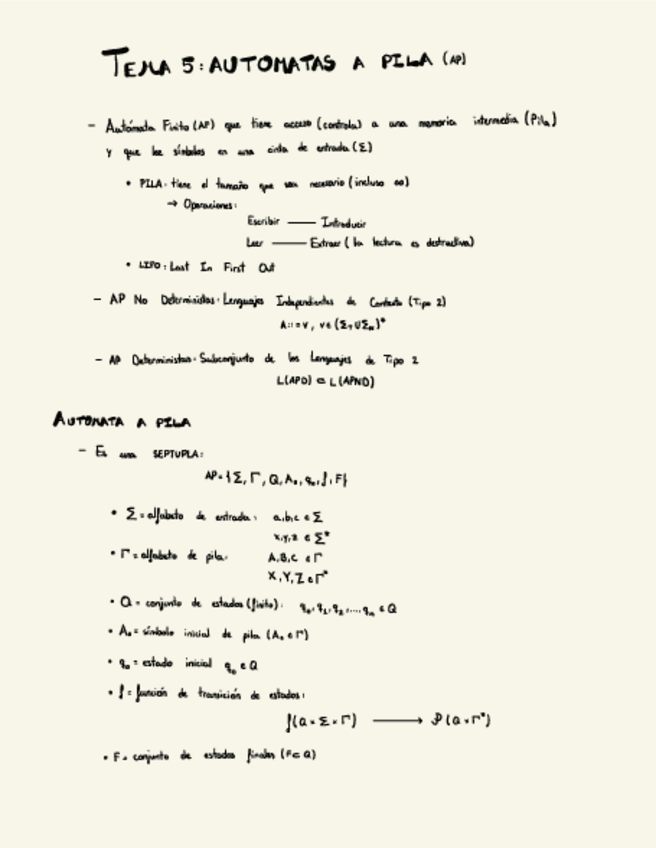 TEMA 5: AUTOMATAS A PILA (AP)
- Autómata Finito (AP) que tiene acceso (controla) a una memoria intermedia (Pila)
y que lee símbolos en una cinta de entrada (Σ)
• PILA: tiene el tamaño que sea necesario (incluso ∞)
→ Operaciones:
Escribir —— Introducir
Leer —— Extraer (la lectura es destructiva)
• LIFO: Last In First Out
- AP No Deterministas: Lenguajes Independientes de Contexto (Tipo 2)
A::=v, v∈(Σ_T∪Σ_N)*
- AP Deterministas: Subconjunto de los Lenguajes de Tipo 2
L(APD) ⊂ L(APND)
AUTOMATA A PILA
- Es una SEPTUPLA:
AP={Σ, Γ, Q, A₀, q₀, f, F}
• Σ = alfabeto de entrada: a,b,c ∈ Σ
x,y,z ∈ Σ*
• Γ = alfabeto de pila: A,B,C ∈ Γ
X,Y,Z ∈ Γ*
• Q = conjunto de estados (finito): q₀, q₁, q₂, ..., qₙ ∈ Q
• A₀ = símbolo inicial de pila (A₀ ∈ Γ)
• q₀ = estado inicial q₀ ∈ Q
• f = función de transición de estados:
f(Q × Σ × Γ) ⟶ P(Q × Γ*)
• F = conjunto de estados finales (F⊂Q)